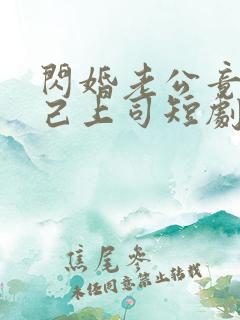 閃婚老公竟
己上司短劇
焦尾參
未经同意禁止转载